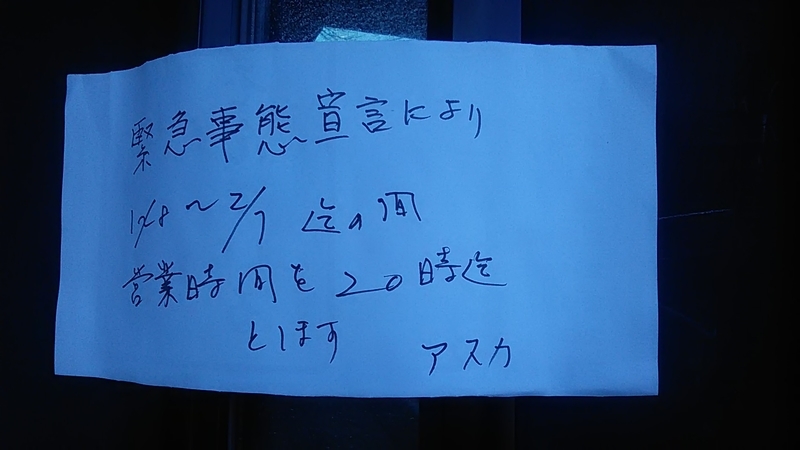 緊急事態宣言により
1/8〜2/7 迄の間
営業時間を20時迄
とします
アスカ